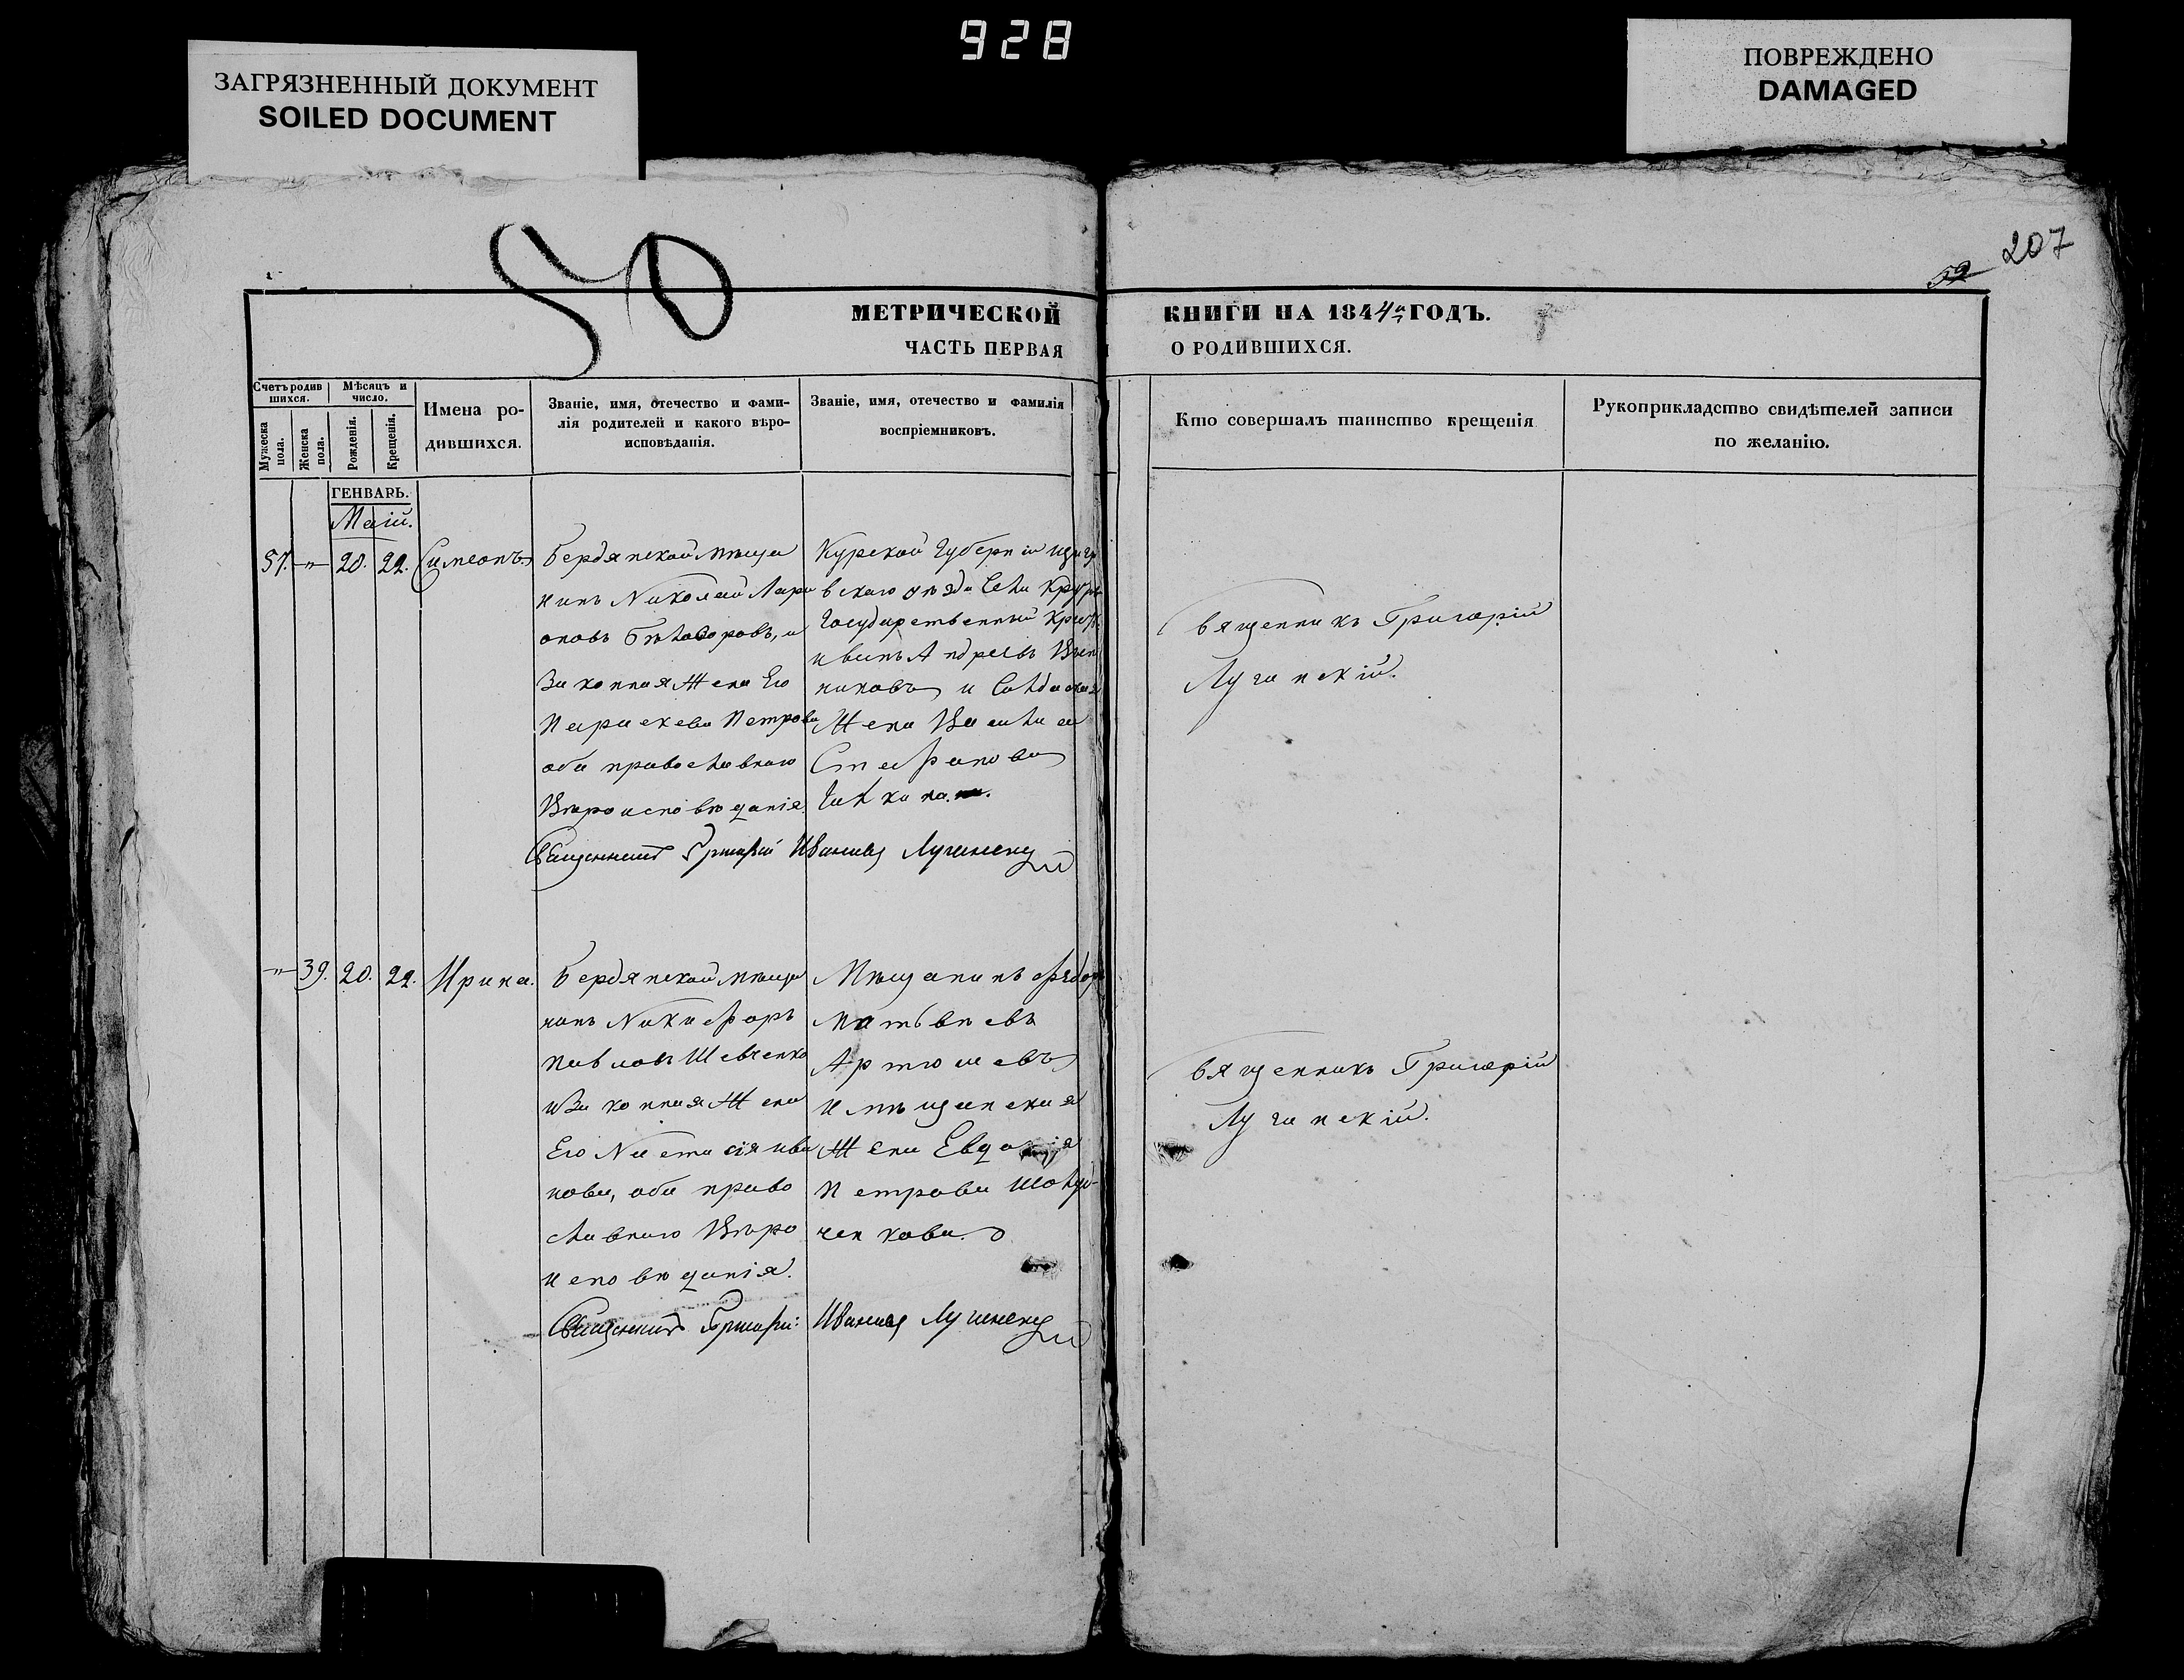 928
ЗАГРЯЗНЕННЫЙ ДОКУМЕНТ
SOILED DOCUMENT
ПОВРЕЖДЕНО
DAMAGED
50
59 207
МЕТРИЧЕСКОЙ КНИГИ НА 1844й ГОДЪ.
ЧАСТЬ ПЕРВАЯ О РОДИВШИХСЯ.
Счетъ родив
шихся.
Мужеска
пола.
Женска
пола.
Мѣсяцъ и
число.
Рожденія.
Крещенія.
Имена ро-
дившихся.
Званіе, имя, отечество и фами-
лія родителей и какого вѣро-
исповѣданія.
Званіе, имя, отечество и фамилія
воспріемниковъ.
Кто совершалъ таинство крещенія
Рукоприкладство свидѣтелей записи
по желанію.
ГЕНВАРЬ.
Маій.
57. -"- 20. 22. Симеонъ
Бердянской мѣща
нинъ Николай Лари
оновъ Бѣлобровъ, и
Законная Жена Его
Параскева Петрова
оба православнаго
Вѣроисповѣданія.
Курской Губерніи
вскаго уѣзда Села
Государственный
Иванъ Андреевъ
никовъ и Солдатская
Жена Василиса
Стефанова
Священникъ Григорій Ивановъ Лучинскій
Священникъ Григорій
Лучинскій.
-"- 39. 20. 22. Ирина.
Бердянской мѣща
нинъ Никифоръ
Павловъ Шевченко
и Законная Жена
Его Настасія Ива
нова, оба право
славнаго Вѣро
исповѣданія.
Мѣщанинъ Ѳедоръ
Матвѣевъ
Артюшевъ
и мѣщанская
Жена Евдокія
Петрова
ченкова.
Священникъ Григорій Ивановъ Лучинскій
Священникъ Григорій
Лучинскій.